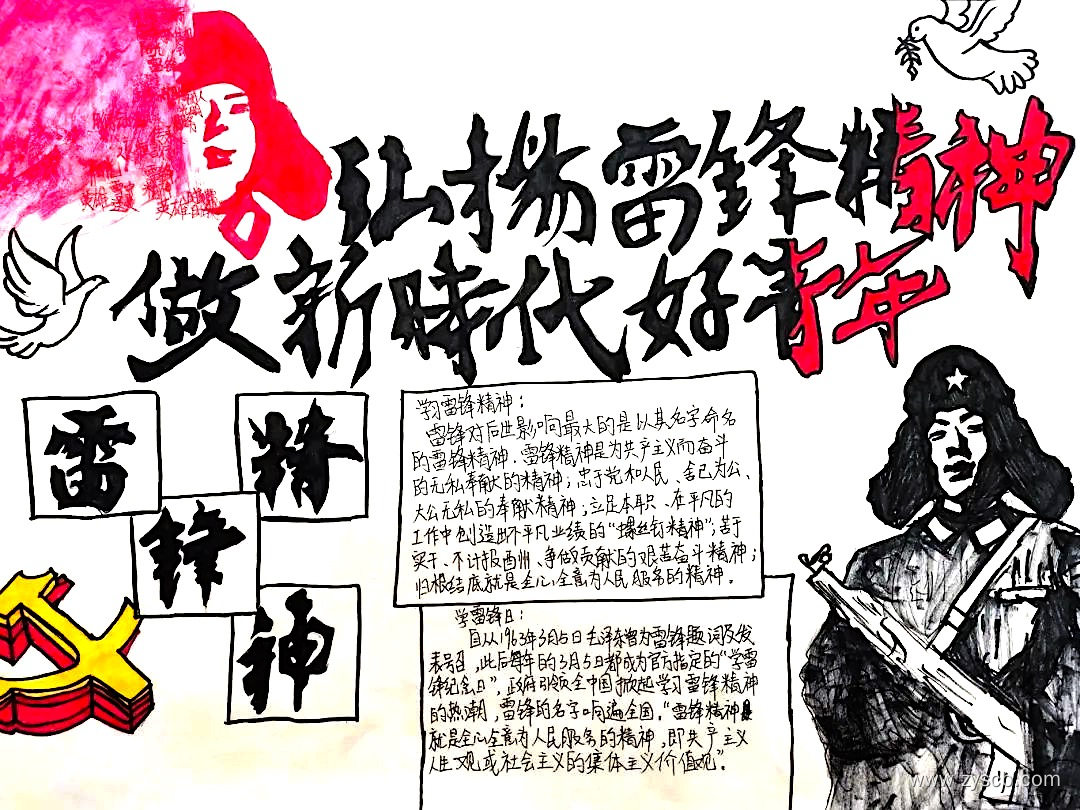 弘揚雷鋒精神
做新時代好青年
雷
精
鋒
神
学习雷锋精神：
雷锋对后世影响最大的是以其名字命名
的雷锋精神．雷锋精神是为共产主义而奋斗
的无私奉献的精神；忠于党和人民、舍己为公、
大公无私的奉献精神；立足本职、在平凡的
工作中创造出不平凡业绩的“螺丝钉精神”；苦干
实干、不计报酬、争做贡献的艰苦奋斗精神；
归根结底就是全心全意为人民服务的精神。
学雷锋日：
自从1963年3月5日毛泽东曾为雷锋题词及发
表号召，此后每年的3月5日都成为官方指定的“学雷
锋纪念日”，政府引领全中国掀起学习雷锋精神
的热潮，雷锋的名字响遍全国．“雷锋精神
就是全心全意为人民服务的精神，即共产主义
人生观或社会主义的集体主义价值观”。
www.zyscb.com